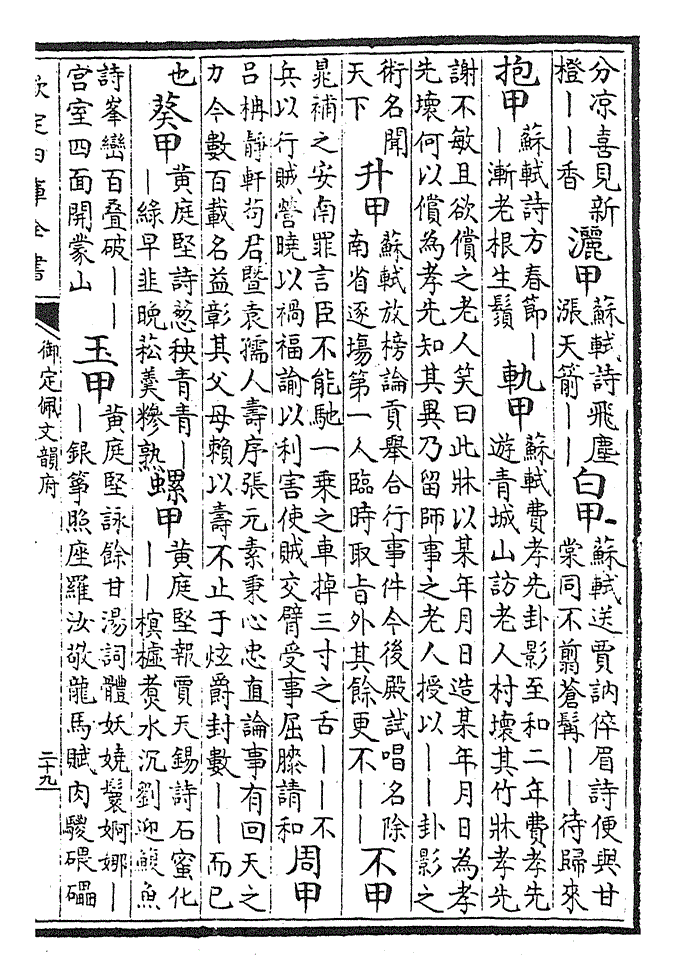 分凉喜見新
橙丨丨香
灑甲
蘇軾詩飛塵
漲天箭丨丨
白甲
蘇軾送賈訥倅眉詩便與甘
棠同不翦蒼髯丨丨待歸來
抱甲
蘇軾詩方春節丨
丨漸老根生鬚
軌甲
蘇軾費孝先卦影至和二年費孝先
遊青城山訪老人村壞其竹牀孝先
謝不敏且欲償之老人笑曰此牀以某年月日造某年月日為孝
先壞何以償為孝先知其異乃留師事之老人授以丨丨卦影之
術名聞
天下
升甲
蘇軾放榜論貢舉合行事件今後殿試唱名除
南省逐塲第一人臨時取旨外其餘更不丨丨
不甲
晁補之安南罪言臣不能馳一乗之車掉三寸之舌丨丨不
兵以行賊營曉以禍福諭以利害使賊交臂受事屈膝請和
周甲
吕柟靜軒苟君暨袁孺人壽序張元素秉心忠直論事有回天之
力今數百載名益彰其父母賴以壽不止于炫爵封數丨丨而已
也
葵甲
黄庭堅詩葱秧青青丨
丨綠早韭晚菘羮糝熟
螺甲
黄庭堅報賈天錫詩石蜜化
丨丨榠樝煑水沉劉迎鰒魚
詩峯巒百叠破丨丨
宫室四面開蒙山
玉甲
黄庭堅詠餘甘湯詞體妖嬈鬟婀娜丨
丨銀箏照座羅汝敬龍馬賦肉騣碨礧
欽定四庫全書
御定佩文韻府
二十九